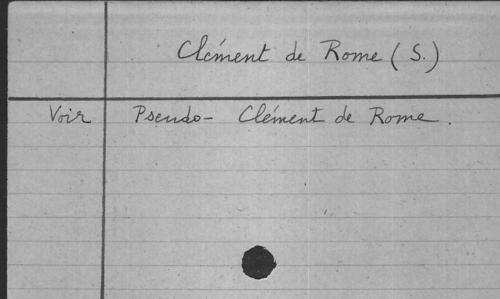 Clément de Rome (S.)
Voir Pseudo- Clément de Rome.